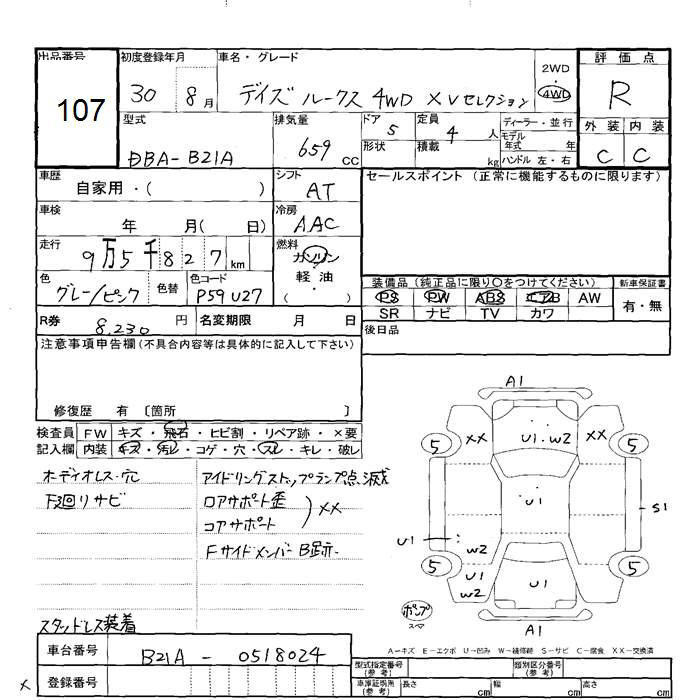 出品番号 107
初度登録年月 30 8月
車名・グレード デイズ ルークス 4WD XVセレクション
2WD
4WD
評価点 R
外装 内装
C C
型式 DBA-B21A
排気量 659 CC
ドア 5
形状
定員 4 人
積載 kg
ディーラー・並行
モデル年式 年
ハンドル 左・右
車歴 自家用・( )
シフト AT
セールスポイント (正常に機能するものに限ります)
車検 年 月( 日)
冷房 AAC
走行 9万5千827km
燃料 ガソリン
軽油
( )
色 グレー/ピンク
色替
色コード P59U27
装備品 (純正品に限り○をつけてください)
新車保証書
PS PW ABS エアB AW
有・無
SR ナビ TV カワ
R券 8,230 円
名変期限 月 日
後日品
注意事項申告欄(不具合内容等は具体的に記入して下さい)
修復歴 有 〔箇所 〕
検査員記入欄
FW キズ・飛石・ヒビ割・リペア跡・×要
内装 キズ・汚レ・コゲ・穴・スレ・キレ・破レ
オーディオレス・穴
下廻リサビ
アイドリングストップランプ点滅
ロアサポート歪
コアサポート
XX
FサイドメンバーB跡.
スタッドレス装着
A1
5 XX U1.W2 XX 5
U1
S1
U1 W2
5 U1 W2 U1 5
ポンプ
スマ
A1
A-キズ E-エクボ U-凹み W-補修跡 S-サビ C-腐食 XX-交換済
車台番号 B21A - 0518024
登録番号
X
型式指定番号(参考)
類別区分番号(参考)
車庫証明用(参考) 長さ cm 幅 cm 高さ cm